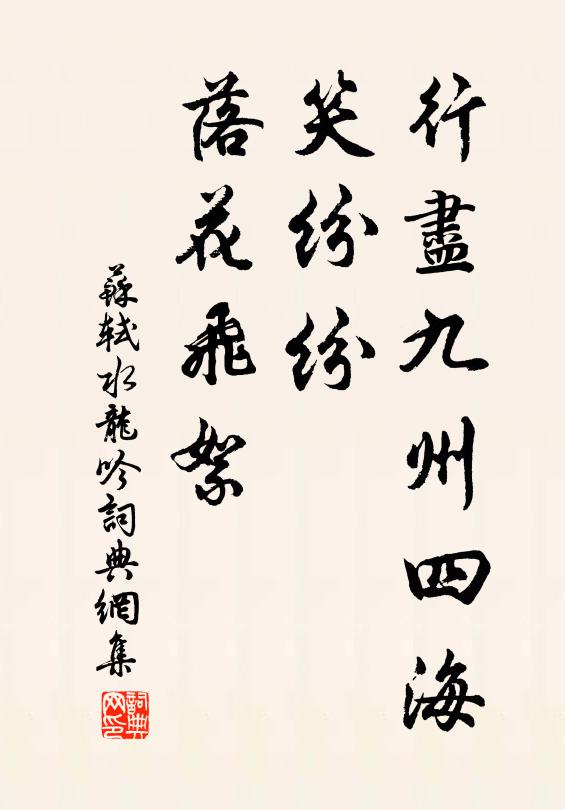 行盡九州四海
笑紛紛
落花飛絮
蘇軾水龍吟詞典網集
詞典
网印